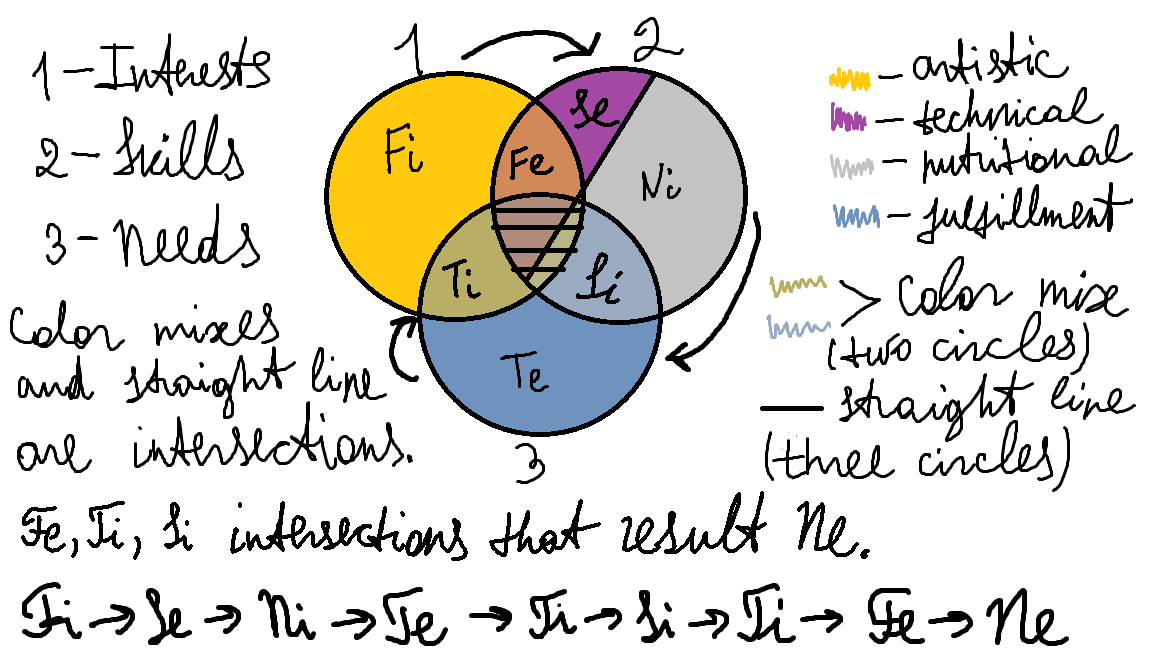 1 - Interests
2 - Skills
3 - Needs
Color mixes
and straight line
are intersections.
1
2
Fi
Fe
Se
Ni
Ti
Si
Te
3
- artistic
- technical
- nutritional
- fulfillment
> Color mix
(two circles)
— straight line
(three circles)
Fe, Ti, Si intersections that result Ne.
Fi → Se → Ni → Te → Ti → Si → Ti → Fe → Ne